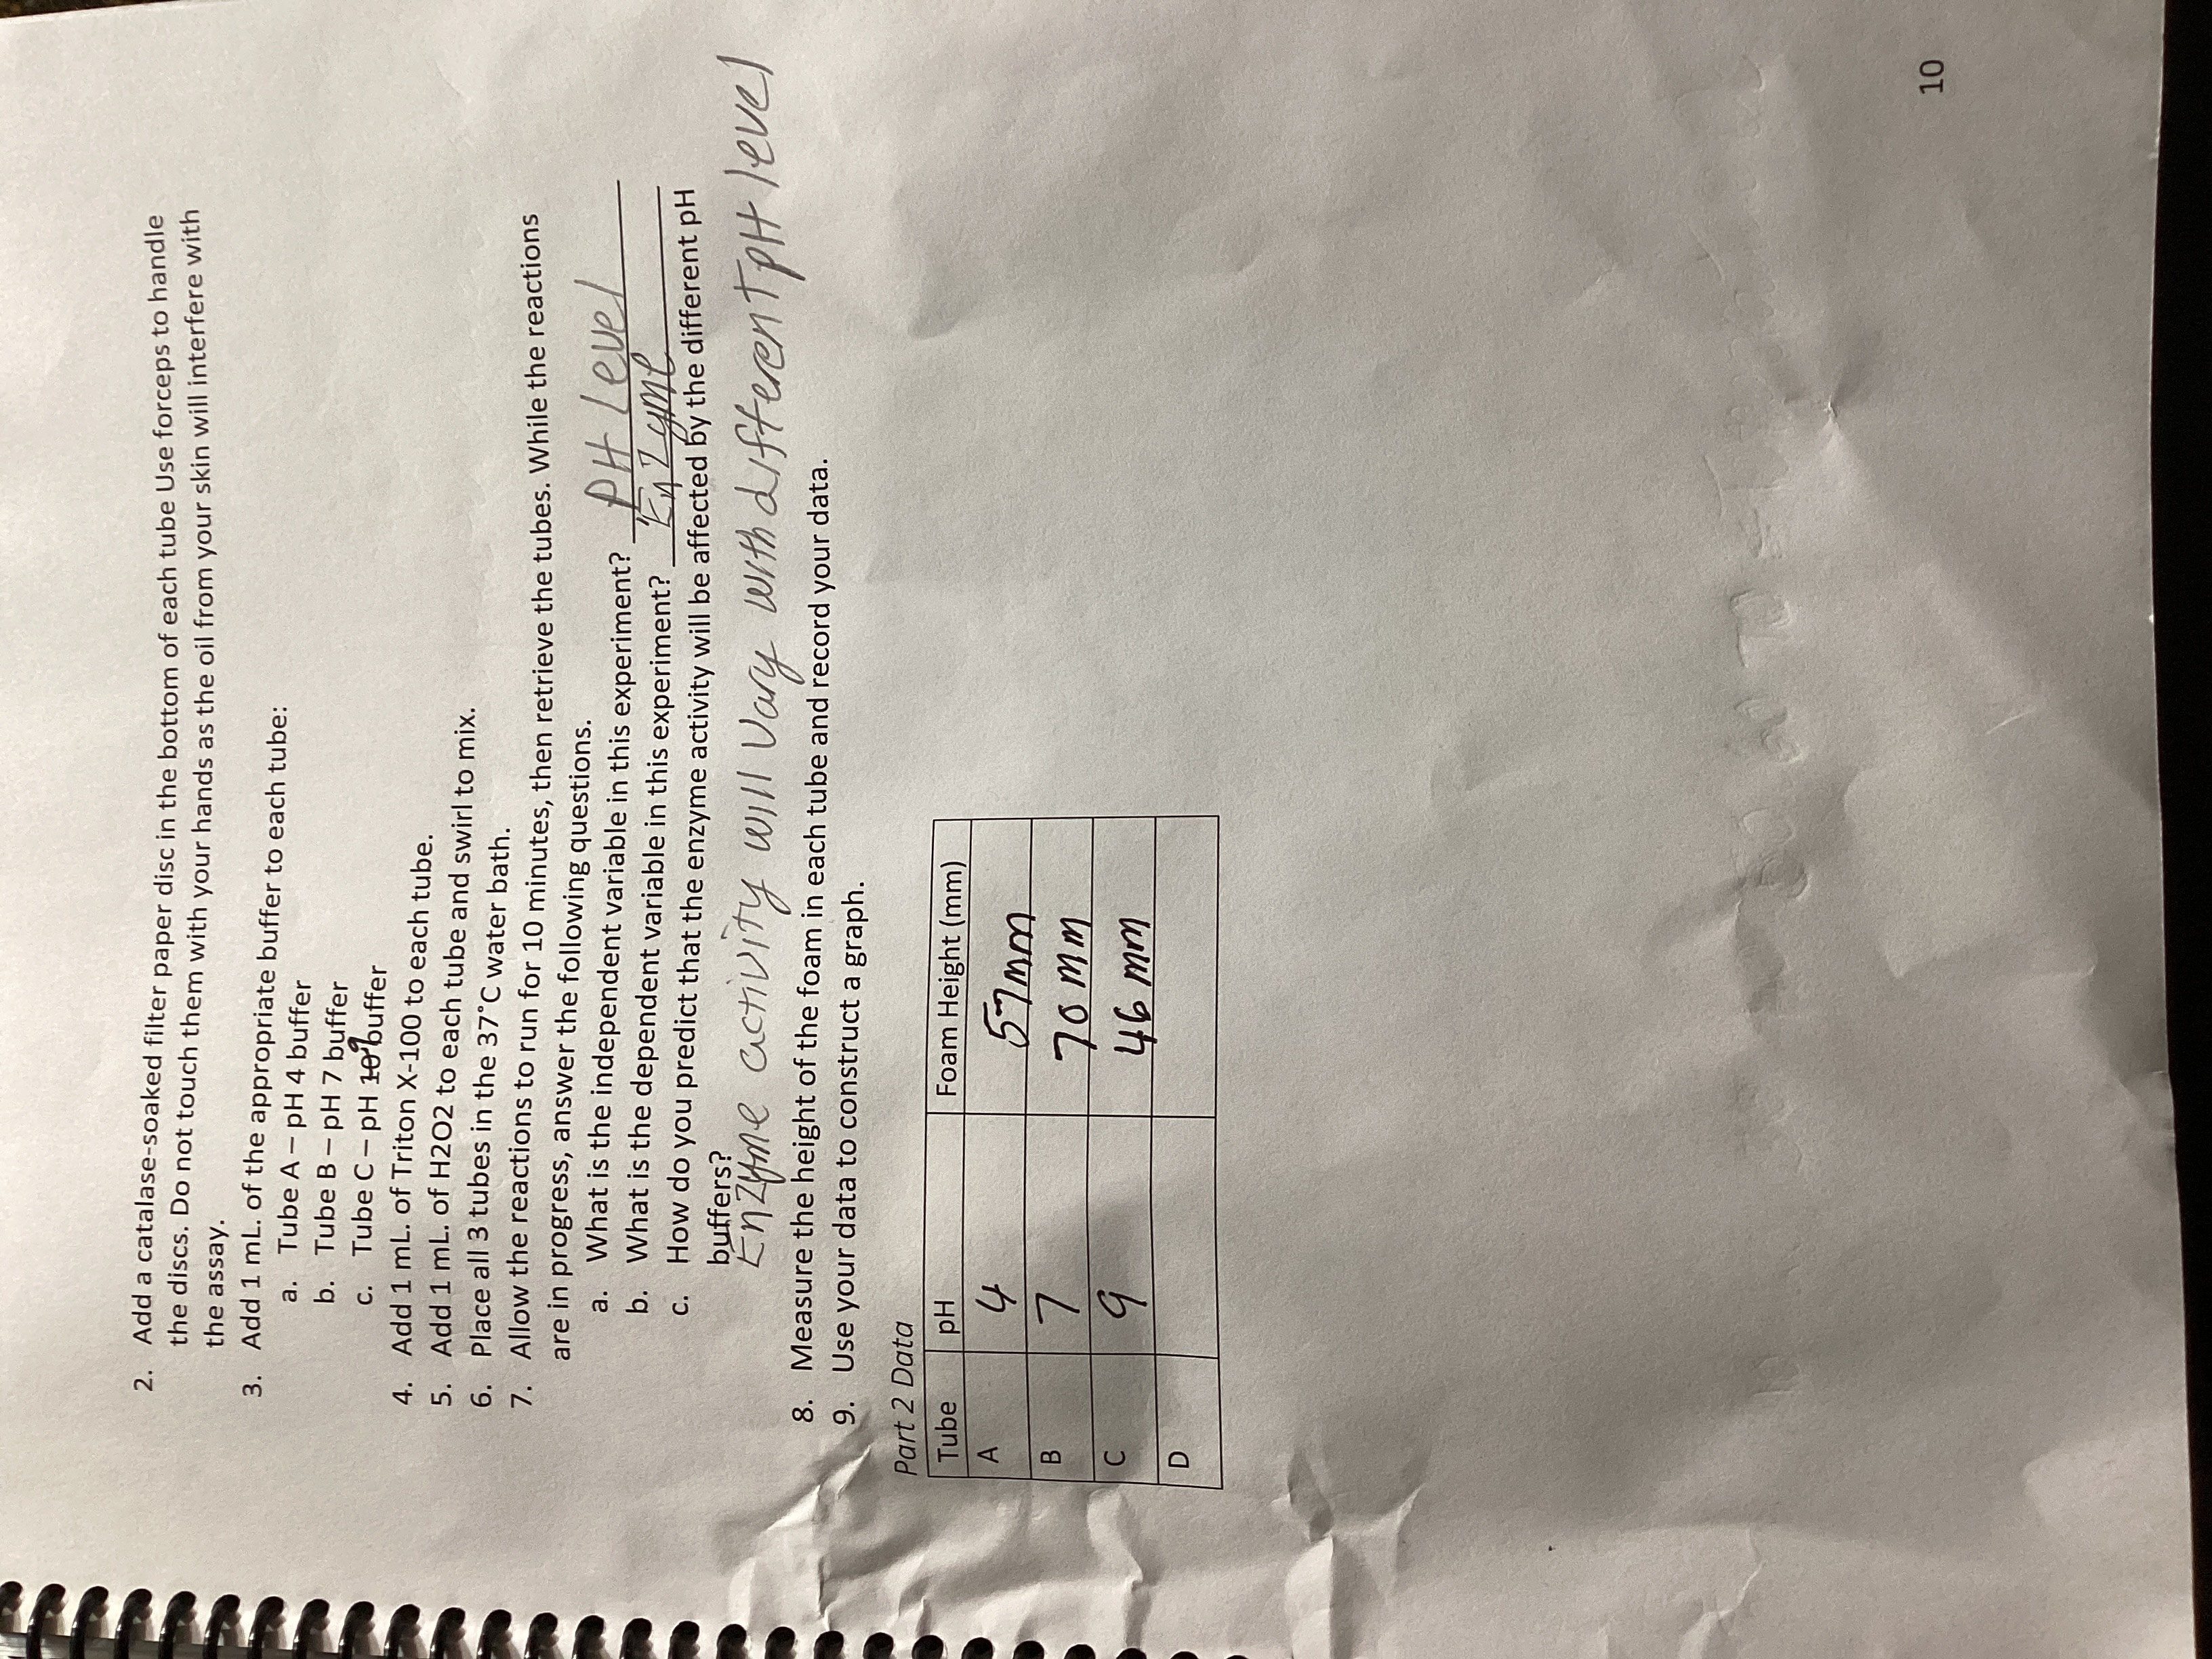 2. Add a catalase-soaked filter paper disc in the bottom of each tube Use forceps to handle
the discs. Do not touch them with your hands as the oil from your skin will interfere with
the assay.
3. Add 1 mL. of the appropriate buffer to each tube:
a. Tube A – pH 4 buffer
b. Tube B – pH 7 buffer
c. Tube C – pH 10 9 buffer
4. Add 1 mL. of Triton X-100 to each tube.
5. Add 1 mL. of H2O2 to each tube and swirl to mix.
6. Place all 3 tubes in the 37°C water bath.
7. Allow the reactions to run for 10 minutes, then retrieve the tubes. While the reactions
are in progress, answer the following questions.
a. What is the independent variable in this experiment? PH Level
b. What is the dependent variable in this experiment? Enzyme
c. How do you predict that the enzyme activity will be affected by the different pH
buffers?
Enzyme activity will vary with different pH level
8. Measure the height of the foam in each tube and record your data.
9. Use your data to construct a graph.
Part 2 Data
Tube pH Foam Height (mm)
A 4 57mm
B 7 70 mm
C 9 46 mm
D
10